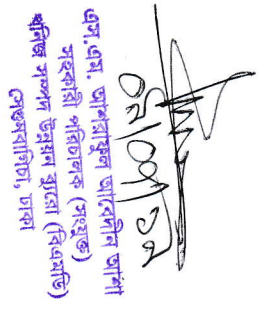 এস.এম. আশরাফুল আবেদীন আশা
সহকারী পরিচালক (সংযুক্ত)
খনিজ সম্পদ উন্নয়ন ব্যুরো (বিএমডি)
সেগুনবাগিচা, ঢাকা